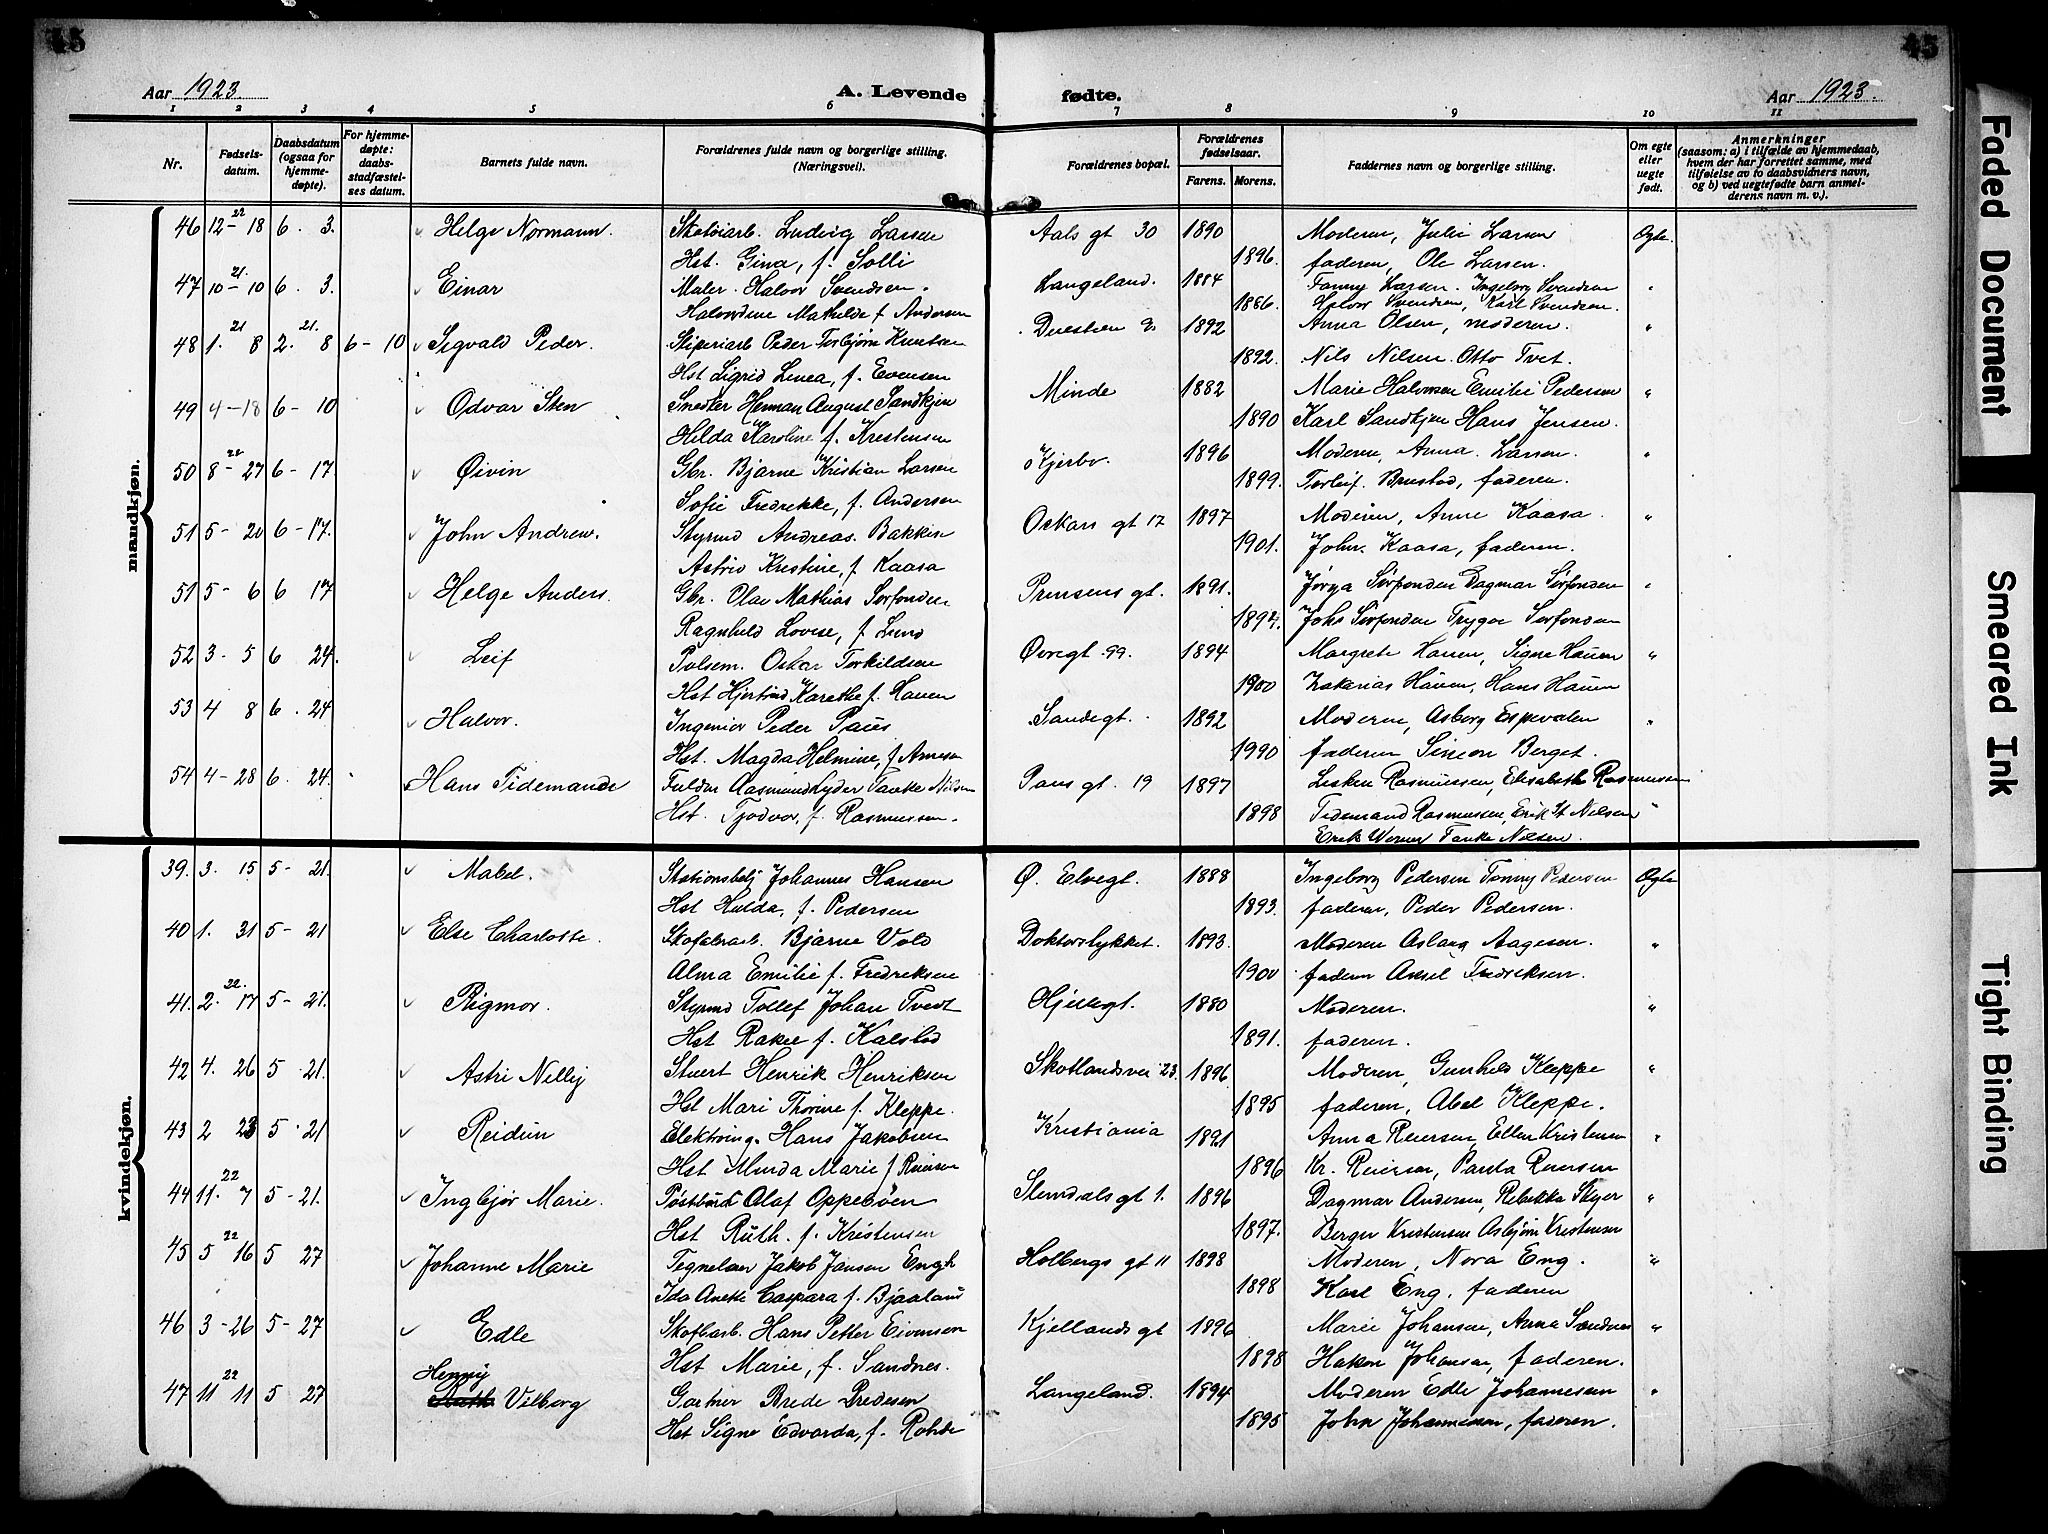 45
45
Aar 1923.
A. Levende
fødte.
Aar 1923.
1 2 3 4 5 6 7 8 9 10 11
Nr.
Fødsels-datum.
Daabsdatum (ogsaa for hjemme-døpte).
For hjemme-døpte: daabs-stadfæstel-ses datum.
Barnets fulde navn.
Forældrenes fulde navn og borgerlige stilling. (Næringsvei).
Forældrenes bopæl.
Forældrenes fødselsaar.
Farens. Morens.
Faddernes navn og borgerlige stilling.
Om egte eller uegte født.
Anmerkninger (saasom: a) i tilfælde av hjemmedaab, hvem der har forrettet samme, med tilføielse av to daabsvidners navn, og b) ved uegtefødte barn anmel-derens navn m. v.).
mandkjøn.
46 12-22 18 6. 3. Helge Normann. Skotøiarb. Ludvig Larsen Aals gt 30 1890 Moderen, Julie Larsen Egte.
Hst. Gina, f. Solli 1896. faderen, Ole Larsen.
47 10-21 10 6. 3. Einar Maler. Halvor Svendsen. Langeland. 1884 Fanny Larsen. Ingeborg Svendsen "
Halvordine Mathilde f Andersen 1886. Halvor Svendsen, Karl Svendsen.
48 1. 21 8 2. 21. 8 6-10 Sigvald Peder. Sliperiarb Peder Torbjørn Knutsen 1892 Anna Olsen, moderen. "
Hst Sigrid Linea, f. Evensen 1892. Nils Nilsen. Otto Tvet.
49 4-18 6-10 Odvar Sten Snedker Herman August Sandkjen Minde 1882 Marie Halvorsen Emilie Pedersen "
Hilda Karoline f. Kristensen 1890 Karl Sandkjen Hans Jensen.
50 8-22 27 6-17 Øivin Gbr. Bjarne Kristian Larsen Kjerbv. 1896 Moderen, Anna. Larsen. "
Sofie Fredrikke, f. Andersen 1899. Torleif. Brustad, faderen.
51 5-20 6-17. John Andrew. Styrmd Andreas. Bakken Oskars gt 17 1897 Moderen, Anne Kaasa. "
Astrid Kristine, f. Kaasa 1901. John. Kaasa, faderen.
51 5-6 6 17 Helge Anders. Gbr. Olav Mathias Sørfonden Prinsens gt. 1891. Jørga Sørfonden Dagmar Sørfonden "
Ragnhild Lovise, f. Lund 1894. Johs Sørfonden Trygve Sørfonden
52 3-5 6 24. Leif Polsem. Oskar Torkildsen Øvregt. 99. 1894 Margrete Hauen, Signe Hauen "
Hst Hjertind Karethe f. Hauen 1900 Zakarias Hauen, Hans Hauen
53 4 8 6. 24 Halvor. Ingeniør Peder Paus Sandegt. 1892 Moderen, Asborg Espevalen "
Hst. Magda Helmine, f Arnesen 1990 faderen Simon Berget.
54 4-28 6. 24. Hans Tidemande Aasmund Lyder Tanke Nilsen Paus gt. 19 1897 Lisken Rasmussen, Elisabeth Rasmussen
Hst. Tjodvor, f. Rasmussen. 1898 Tidemand Rasmussen, Erik St Nielsen "
Erik Werner Tanke Nilsen.
kvindekjøn.
39. 3. 15 5-21. Mabel. Stationsbetj Johannes Hansen Ø. Elvegt. 1888 Ingeborg Pedersen Tonny Pedersen Egte
Hst Hulda, f. Pedersen 1893. faderen, Peder Pedersen.
40 1. 31 5-21 Else Charlotte. Skofabarb. Bjarne Vold Doktorslykket. 1893. Moderen Aslaug Aagesen. "
Alma Emilie f. Fredriksen 1900 faderen Aksel Fredriksen.
41. 2. 22. 17 5-21. Rigmor. Styrmd Tollef Johan Tvedt Hjellegt. 1880 Moderen. "
Hst Rakel f. Kalstad 1891. faderen.
42 4. 26 5 21. Astri Nelly Stuert Henrik Henriksen Skotlandsvei 23. 1896. Moderen, Gunhild Kleppe "
Hst Mari Thorine f. Kleppe. 1895 faderen, Abel Kleppe.
43 2 23 5. 21 Reidun Elektroing. Hans Jakobsen Kristiania 1891 Anna Reiersen, Ellen Kristensen "
Hst Minda Marie f Reiersen 1896 Kr. Reiersen, Paula Reiersen
44 11. 22 7 5-21. Ingbjør Marie. Postbud Olaf Oppebøen Slemdals gt 1. 1896 Dagmar Andersen, Rebekka Styer "
Hst Ruth. f. Kristensen 1897. Berger Kristensen Asbjørn Kristensen
45 5 22 16 5 27 Johanne Marie Tegnelær Jakob Jansen Engh Holbergs gt 11 1898 Moderen, Nora Eng. "
Ida Anette Caspara f. Bjaaland 1898 Karl Eng, faderen
46 3-26 5-27 Edle Skofbarb. Hans Petter Eivensen Kjellands gt 1896 Marie Johansen, Anna Sandnes "
Hst Marie, f. Sandnes. 1898 Hakon Johansen, faderen.
47 11 22 11 5 27 Henny Vilborg Gartner Brede Bredesen Langeland. 1894 Moderen Edle Johannesen "
Hst Signe Edvarda, f. Rohde 1895 John Johannesen, faderen.
Faded Document
Smeared Ink
Tight Binding